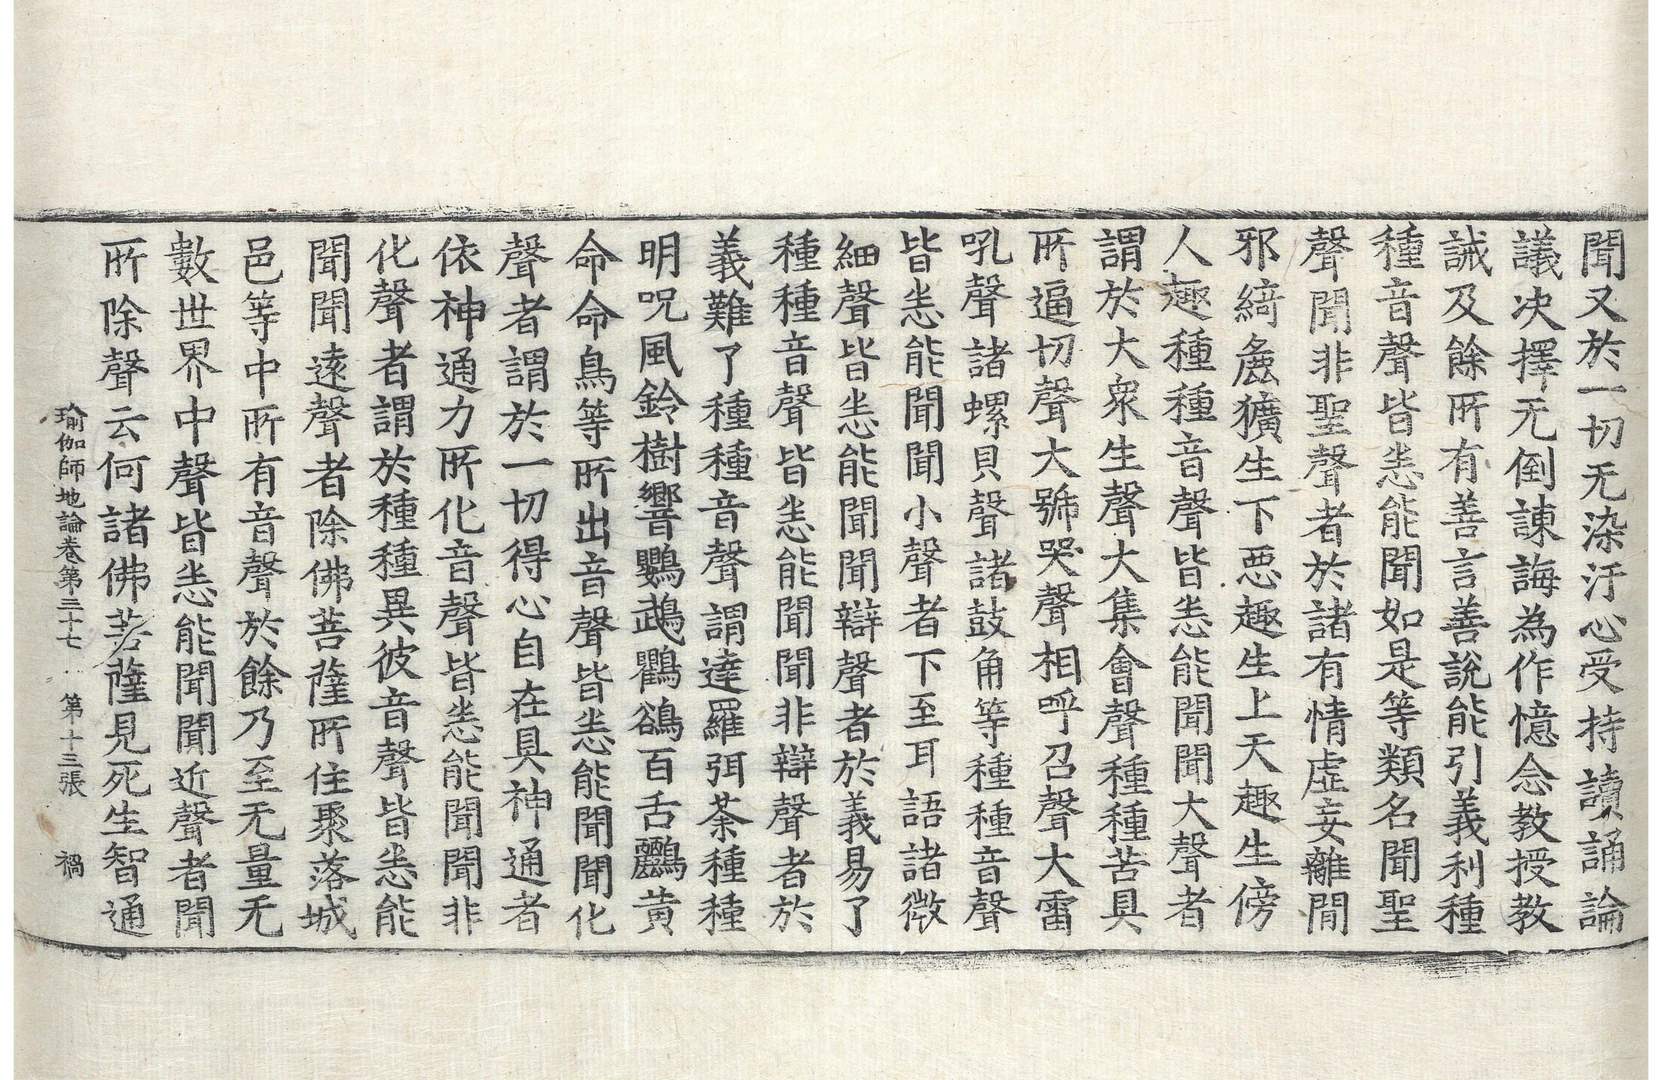 聞又於一切无染汙心受持讀誦論
議決擇无倒諫誨為作憶念教授教
誡及餘所有善言善說能引義利種
種音聲皆悉能聞如是等類名聞聖
聲聞非聖聲者於諸有情虛妄離間
邪綺麁獷生下惡趣生上天趣生傍
人趣種種音聲皆悉能聞聞大聲者
謂於大衆生聲大集會聲種種苦具
所逼切聲大號哭聲相呼召聲大雷
吼聲諸螺貝聲諸鼓角等種種音聲
皆悉能聞聞小聲者下至耳語諸微
細聲皆悉能聞聞辯聲者於義易了
種種音聲皆悉能聞聞非辯聲者於
義難了種種音聲謂達羅弭荼種種
明呪風鈴樹響鸚鵡鸜鵒百舌鸝黄
命命鳥等所出音聲皆悉能聞聞化
聲者謂於一切得心自在具神通者
依神通力所化音聲皆悉能聞聞非
化聲者謂於種種異彼音聲皆悉能
聞聞遠聲者除佛菩薩所住聚落城
邑等中所有音聲於餘乃至无量无
數世界中聲皆悉能聞聞近聲者聞
所除聲云何諸佛菩薩見死生智通
瑜伽師地論卷第三十七 第十三張 禍